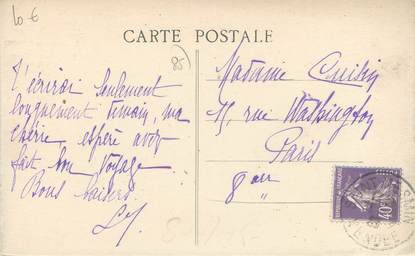 10 €
CARTE POSTALE
85
J'écrirai seulement
longuement demain, ma
chérie, espère avez
fait bon voyage.
Bons baisers
Madame
15, rue Washington
Paris
8 arr
40
VENDÉE